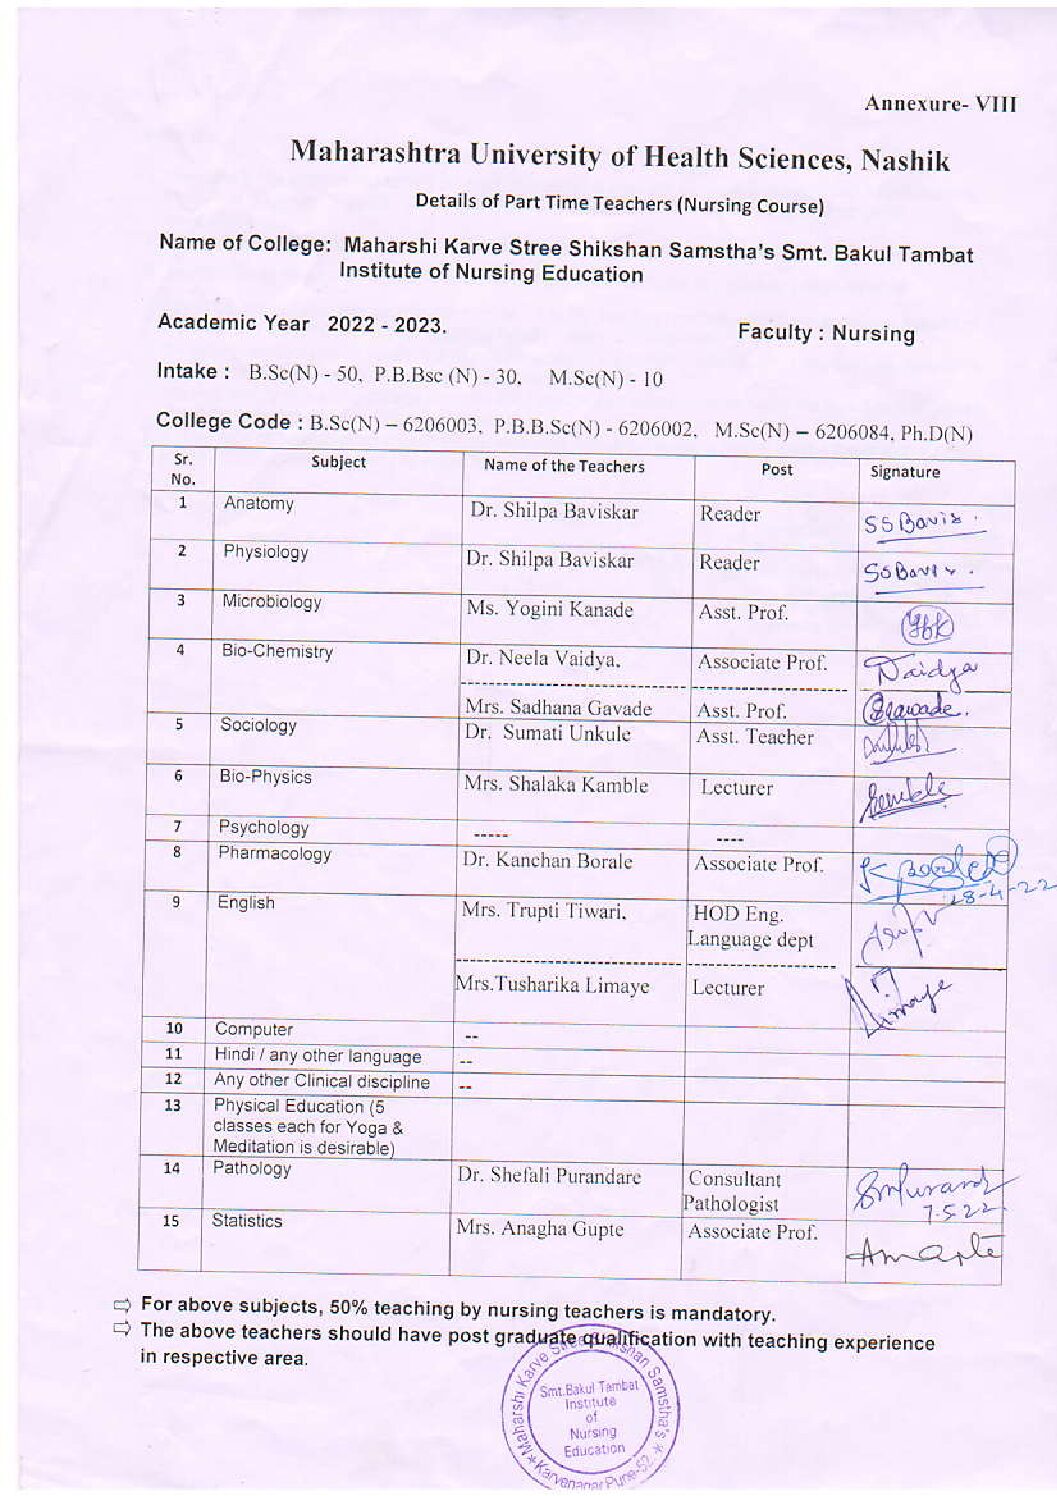 Annexure- VIII
Maharashtra University of Health Sciences, Nashik
Details of Part Time Teachers (Nursing Course)
Name of College: Maharshi Karve Stree Shikshan Samstha's Smt. Bakul Tambat
Institute of Nursing Education
Academic Year 2022 - 2023.
Faculty : Nursing
Intake : B.Sc(N) - 50, P.B.Bsc (N) - 30, M.Sc(N) - 10
College Code : B.Sc(N) – 6206003, P.B.B.Sc(N) - 6206002, M.Sc(N) – 6206084, Ph.D(N)
Sr. No. Subject Name of the Teachers Post Signature
1 Anatomy Dr. Shilpa Baviskar Reader SSBavis.
2 Physiology Dr. Shilpa Baviskar Reader
3 Microbiology Ms. Yogini Kanade Asst. Prof.
4 Bio-Chemistry Dr. Neela Vaidya. Associate Prof.
Mrs. Sadhana Gavade Asst. Prof.
5 Sociology Dr. Sumati Unkule Asst. Teacher
6 Bio-Physics Mrs. Shalaka Kamble Lecturer
7 Psychology ----- ----
8 Pharmacology Dr. Kanchan Borale Associate Prof.
28-4-22
9 English Mrs. Trupti Tiwari. HOD Eng.
Language dept
Mrs.Tusharika Limaye Lecturer
10 Computer --
11 Hindi / any other language --
12 Any other Clinical discipline --
13 Physical Education (5
classes each for Yoga &
Meditation is desirable)
14 Pathology Dr. Shefali Purandare Consultant
Pathologist
7.5.22
15 Statistics Mrs. Anagha Gupte Associate Prof.
⇨ For above subjects, 50% teaching by nursing teachers is mandatory.
⇨ The above teachers should have post graduate qualification with teaching experience
in respective area.
Maharshi Karve Stree Shikshan Samstha's
Smt.Bakul Tambat
Institute
of
Nursing
Education
Karvenagar Pune-52